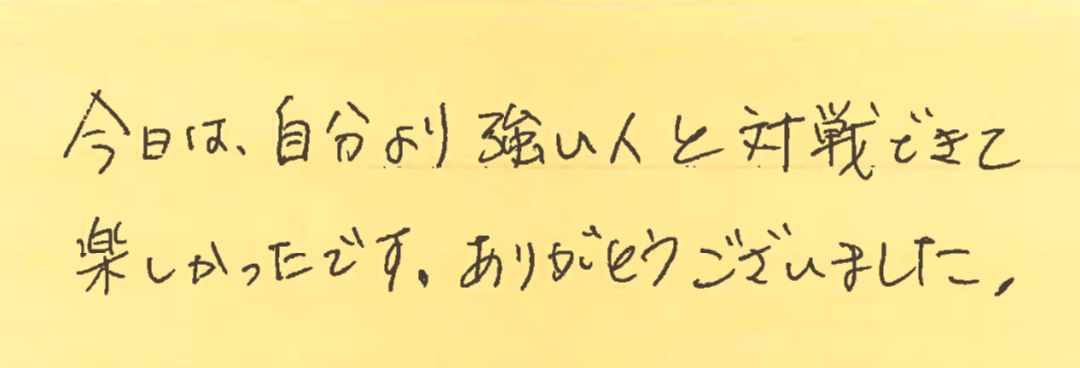 今日は、自分より強い人と対戦できて
楽しかったです。ありがとうございました。